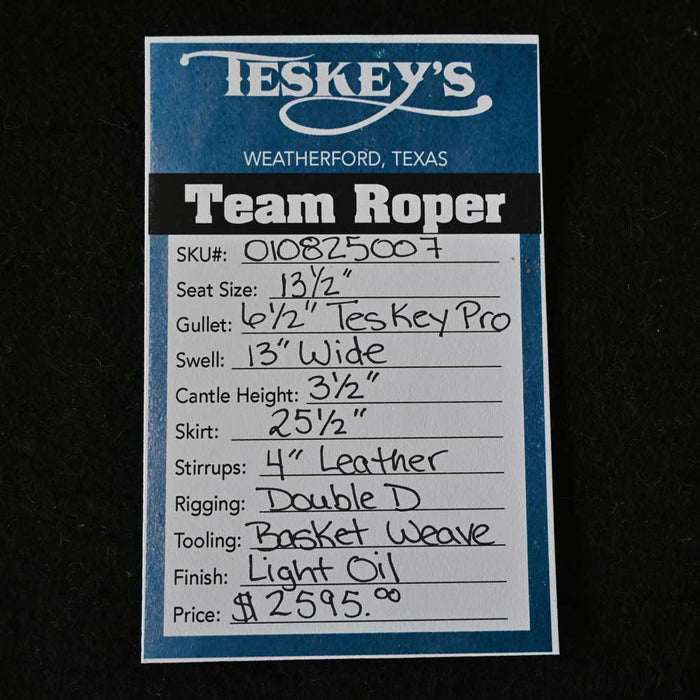 TESKEY'S
WEATHERFORD, TEXAS
Team Roper
SKU#: 010825007
Seat Size: 13½"
Gullet: 6½" TesKey Pro
Swell: 13" Wide
Cantle Height: 3½"
Skirt: 25½"
Stirrups: 4" Leather
Rigging: Double D
Tooling: Basket Weave
Finish: Light Oil
Price: $2595.00